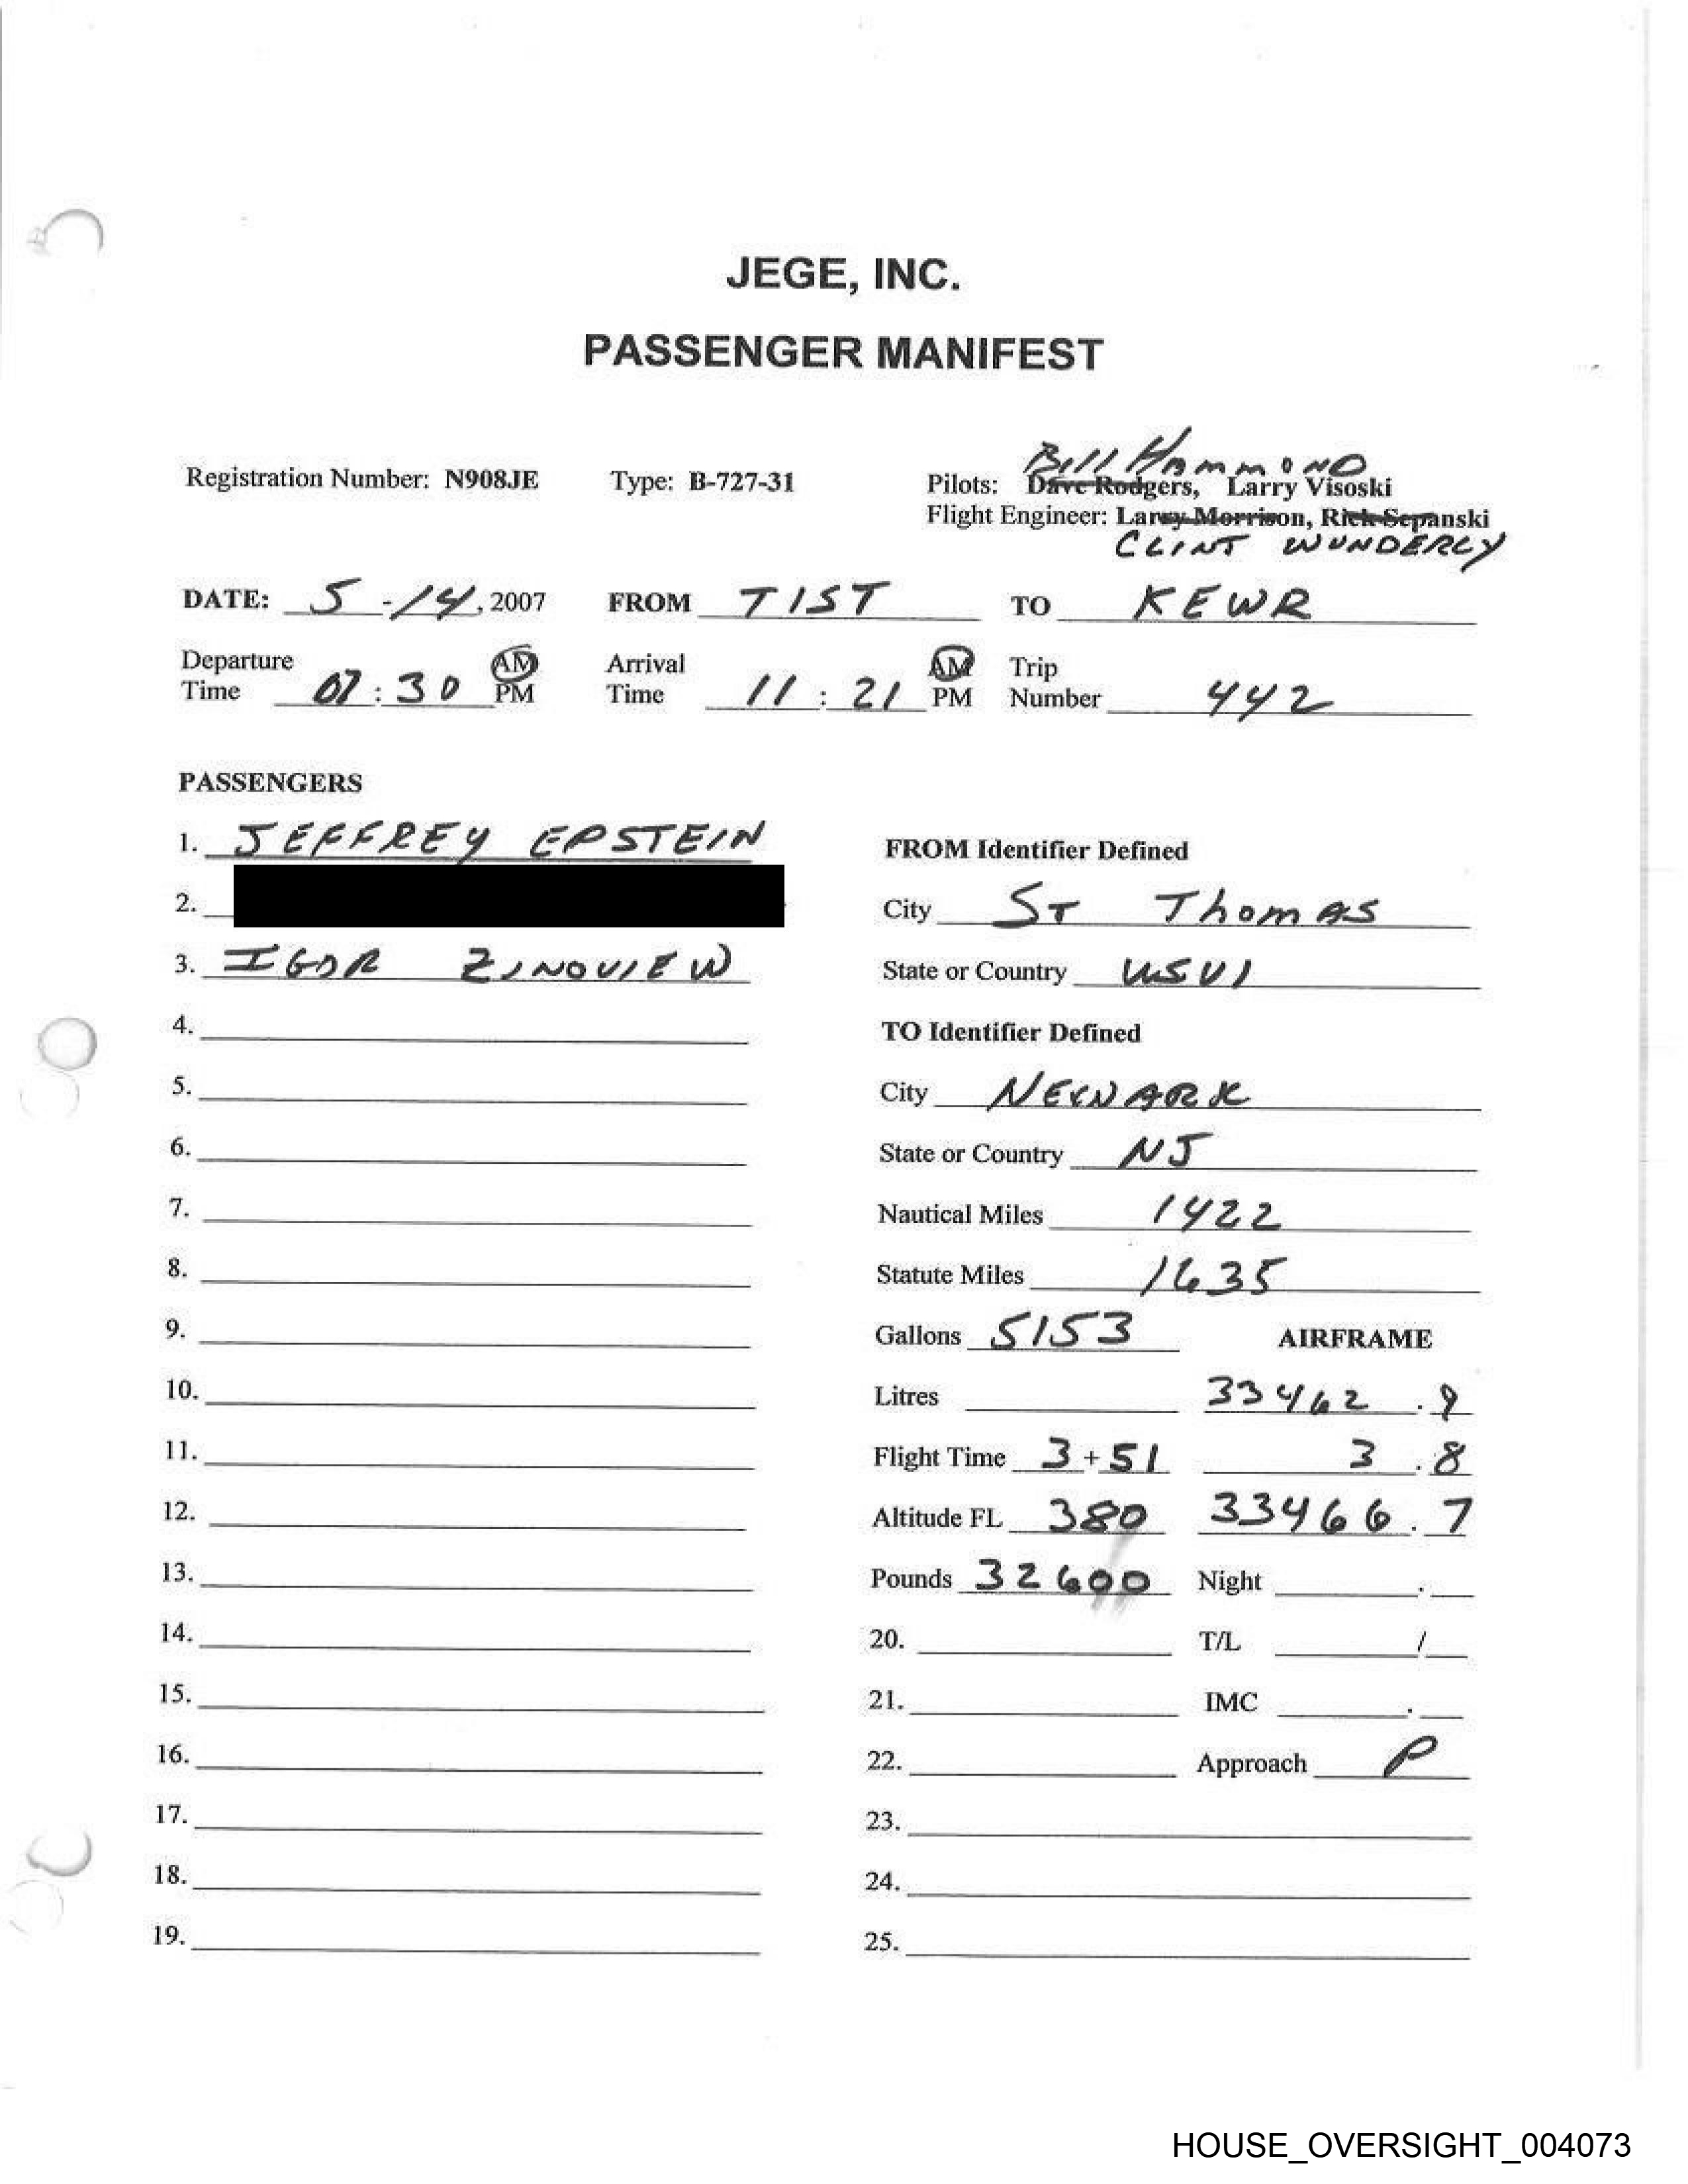 JEGE, INC.
PASSENGER MANIFEST
Bill Hammond
Registration Number: N908JE Type: B-727-31 Pilots: Dave Rodgers, Larry Visoski
Flight Engineer: Larry Morrison, Rick Sepanski
CLINT WUNDERLY
DATE: 5-14, 2007 FROM TIST TO KEWR
Departure Time 07:30 AM PM Arrival Time 11:21 AM PM Trip Number 442
PASSENGERS
1. JEFFREY EPSTEIN
FROM Identifier Defined
2.
City ST Thomas
3. IGOR ZINOVIEW
State or Country USVI
4.
TO Identifier Defined
5.
City NEWARK
6.
State or Country NJ
7.
Nautical Miles 1422
8.
Statute Miles 1635
9.
Gallons 5153 AIRFRAME
10.
Litres 33462.9
11.
Flight Time 3+51 3.8
12.
Altitude FL 380 33466.7
13.
Pounds 32600 Night .
14.
20. T/L /
15.
21. IMC .
16.
22. Approach P
17.
23.
18.
24.
19.
25.
HOUSE_OVERSIGHT_004073